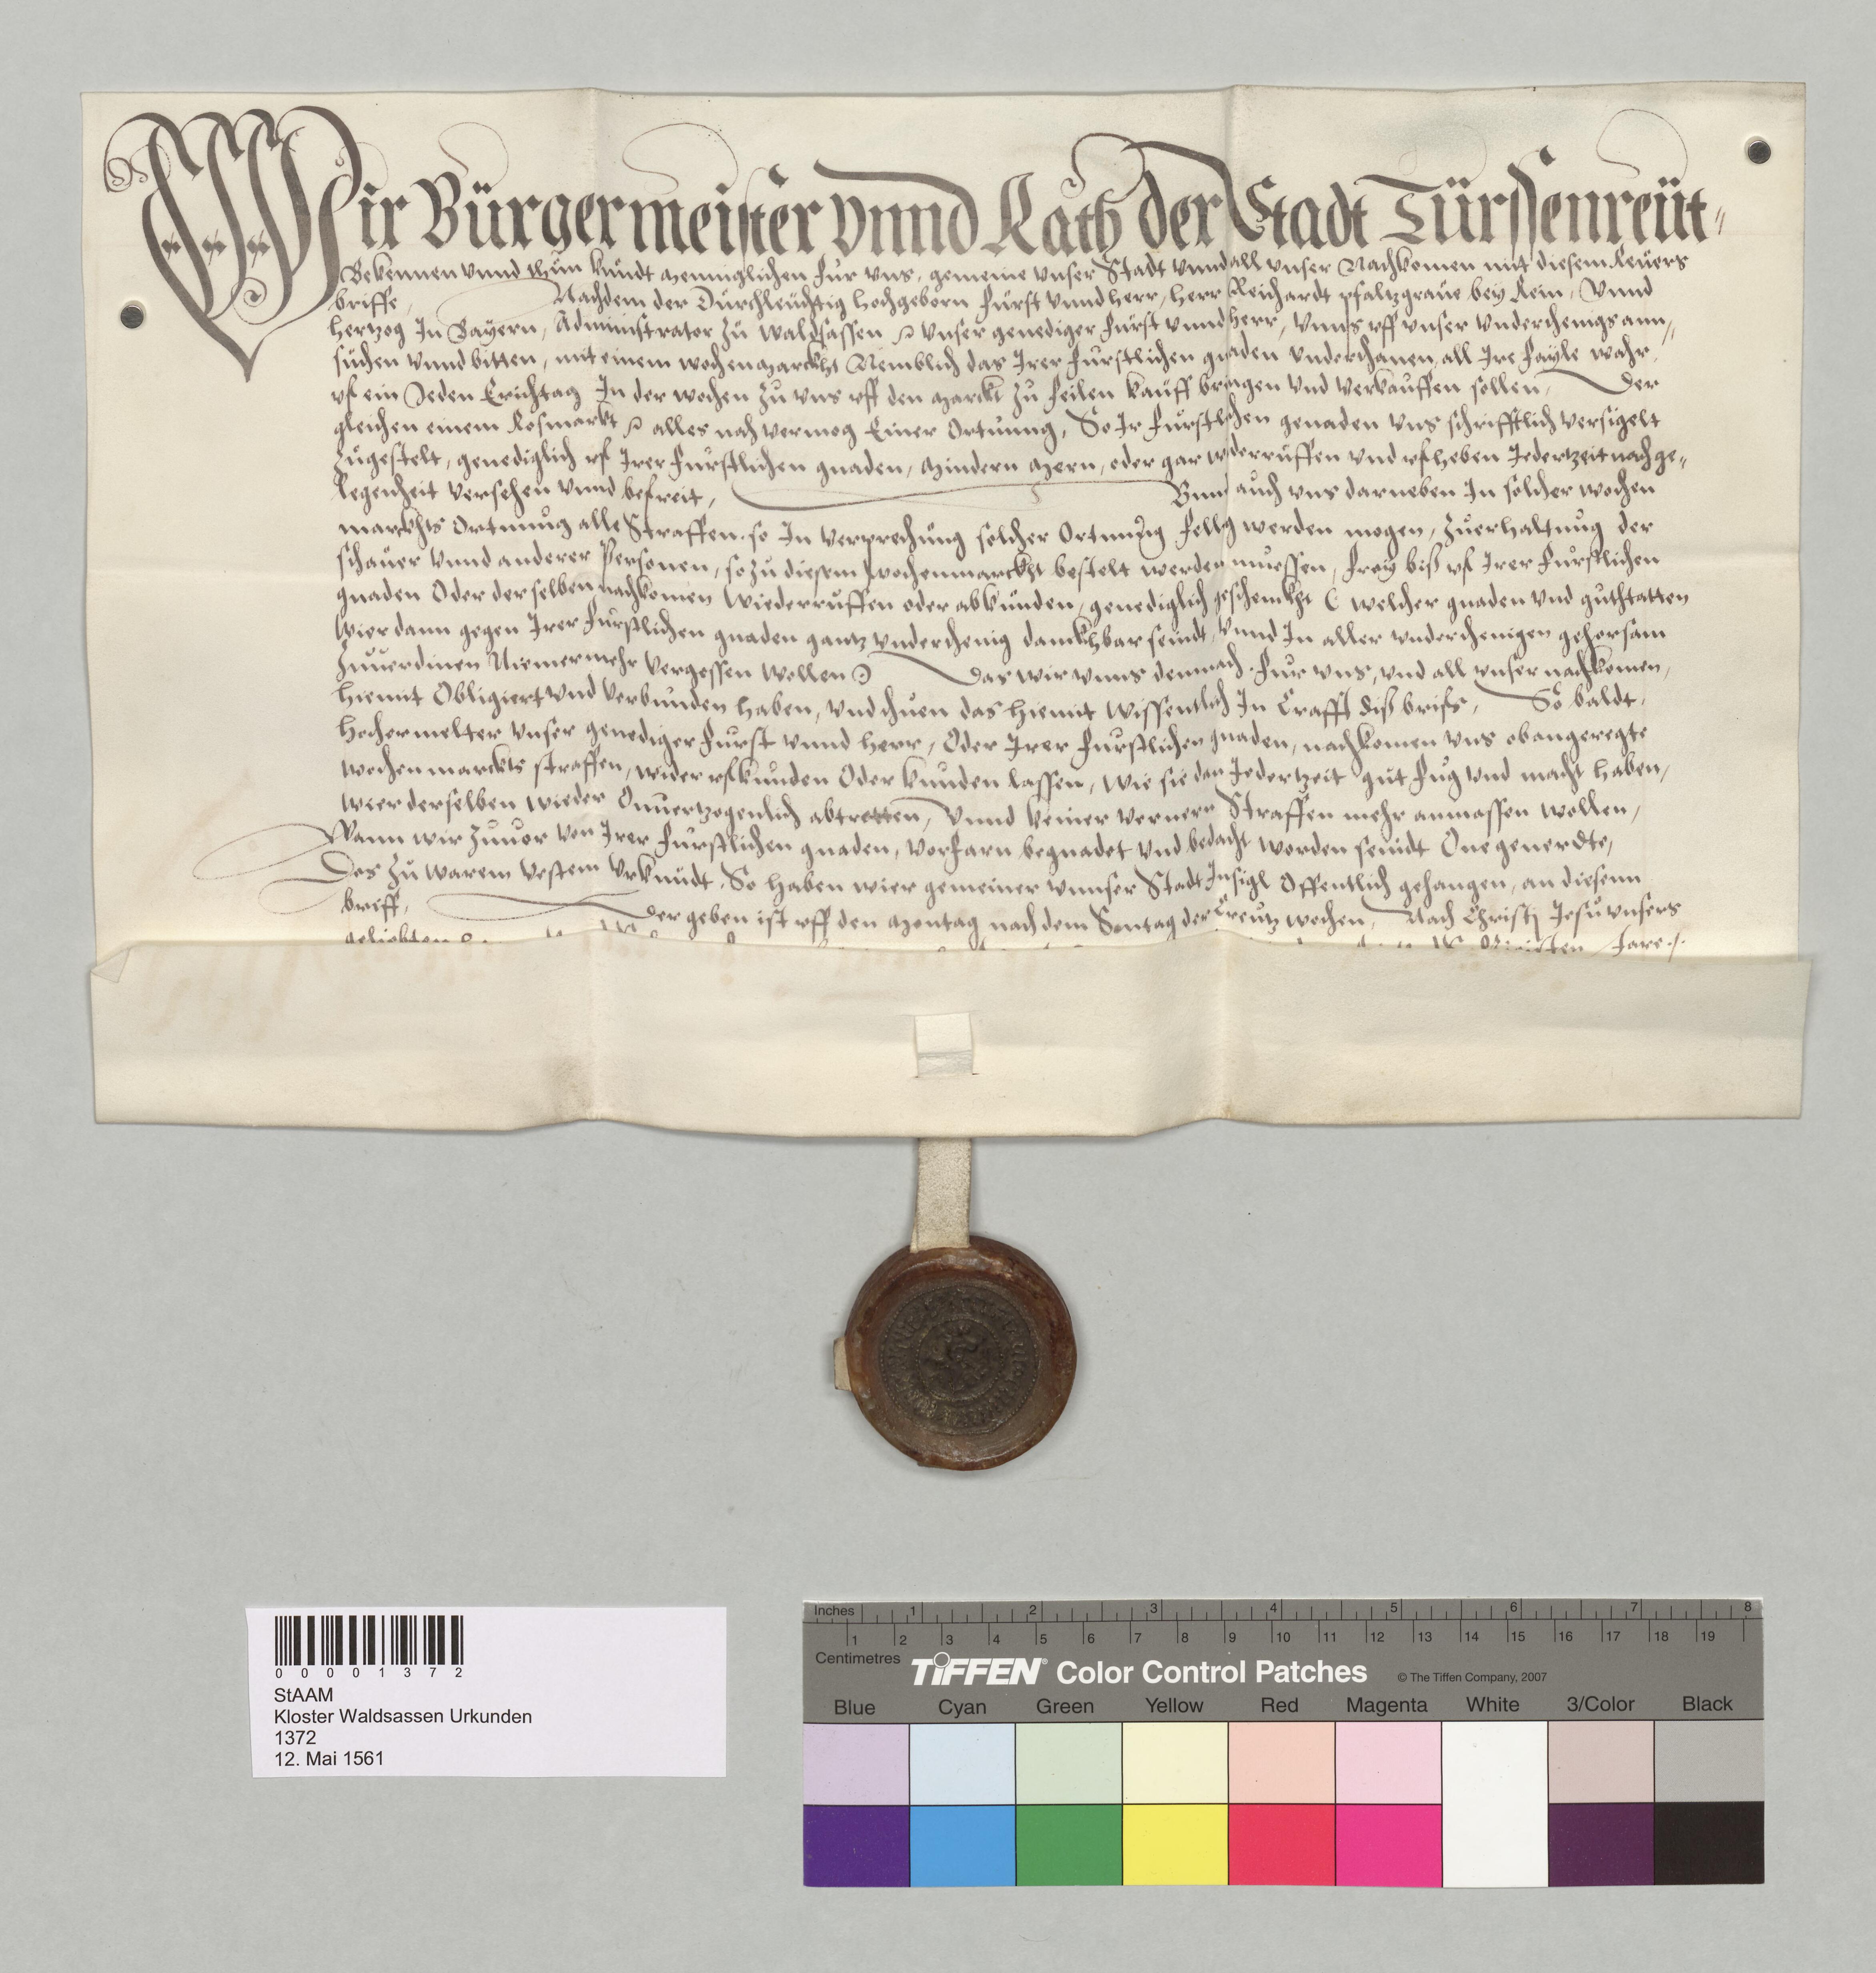 Wir Bürgermeister vnnd Rath der Stadt Türssenreüt
Bekennen vnnd thun kundt menniglichen fur vns, gemeine vnser Stadt vnnd all vnser Nachkomen mit diesem Reuers
briffe, Nachdem der Durchleuchtig hochgeborn Furst vnnd herr, herr Reichardt pfaltzgraue bey Rein, Vnnd
hertzog In Bayern, Administrator zu waldsassen vnser genediger Furst vnnd herr, Vnns vff vnser vnderthenigs ann,,
suchen vnnd bitten, mit einem wochenmarckht Nemblich das Irer Furstlichen gnaden vnderthanen, all Ire fayle wahr,
vf ein Jeden Erichtag In der wochen zu vns vff den marckt zu feilen kauff bringen vnd verkauffen sollen, Der
gleichen einem Rosmarkt alles nach vermog Einer Ortnung, So Ir Furstlichen genaden vns schrifftlich versigelt
zugestelt, genediglich vf Irer Furstlichen gnaden, mindern mern, oder gar widerruffen vnd vfheben Jedertzeit nach ge,,
legenheit versehen vnnd befreit, Vnnd auch vns darneben In solcher wochen
marckhts Ortnung alle Straffen, so In verprechung solcher Ortnung fellig werden mogen, zuerhaltung der
schauer vnnd anderer Personen, so zu diesem wochenmarckht bestelt werden muessen, frey biß vf Irer Furstlichen
gnaden Oder derselben nachkomen wiederruffen oder abkunden, genediglich geschenckht welcher gnaden vnd guthtatten
wier dann gegen Irer Furstlichen gnaden gantz vnderthenig danckhbar seindt, Vnnd In aller vnderthenigen gehorsam
zuuerdinen Niemermehr vergessen wollen Das wir vnns demnach fur vns, vnd all vnser nachkomen,
hiemit Obligiert vnd verbunden haben, vnd thuen das hiemit wissentlich In Crafft diß briefs, So baldt,
hochermelter vnser genediger Furst vnnd herr, Oder Irer Furstlichen gnaden, nachkomen vns obangeregte
wochenmarckts straffen, wider vfkunden Oder kunden lassen, wie sie dan Jedertzeit gut fug vnd macht haben,
wier derselben wieder Onuertzogenlich abtretten, Vnnd keiner verner Straffen mehr anmassen wollen,
Wann wir zuuor von Irer Furstlichen gnaden, vorfarn begnadet vnd bedacht worden seindt One generdte,
Des zu warem vestem Vrkundt, So haben wier gemeiner vnnser Stadt Insigl Offentlich gehangen, an diesenn
briff, Der geben ist vff den montag nach dem Sontag der Creutz wochen, Nach Christj Jesu vnsers
geliebten Jare
00001372
StAAM
Kloster Waldsassen Urkunden
1372
12. Mai 1561
Inches 1 2 3 4 5 6 7 8
1 2 3 4 5 6 7 8 9 10 11 12 13 14 15 16 17 18 19
Centimetres
TIFFEN® Color Control Patches © The Tiffen Company, 2007
Blue Cyan Green Yellow Red Magenta White 3/Color Black